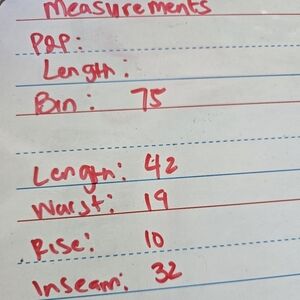 Measurements
P2P:
Length:
Bin: 75
Length: 42
Waist: 19
Rise: 10
Inseam: 32